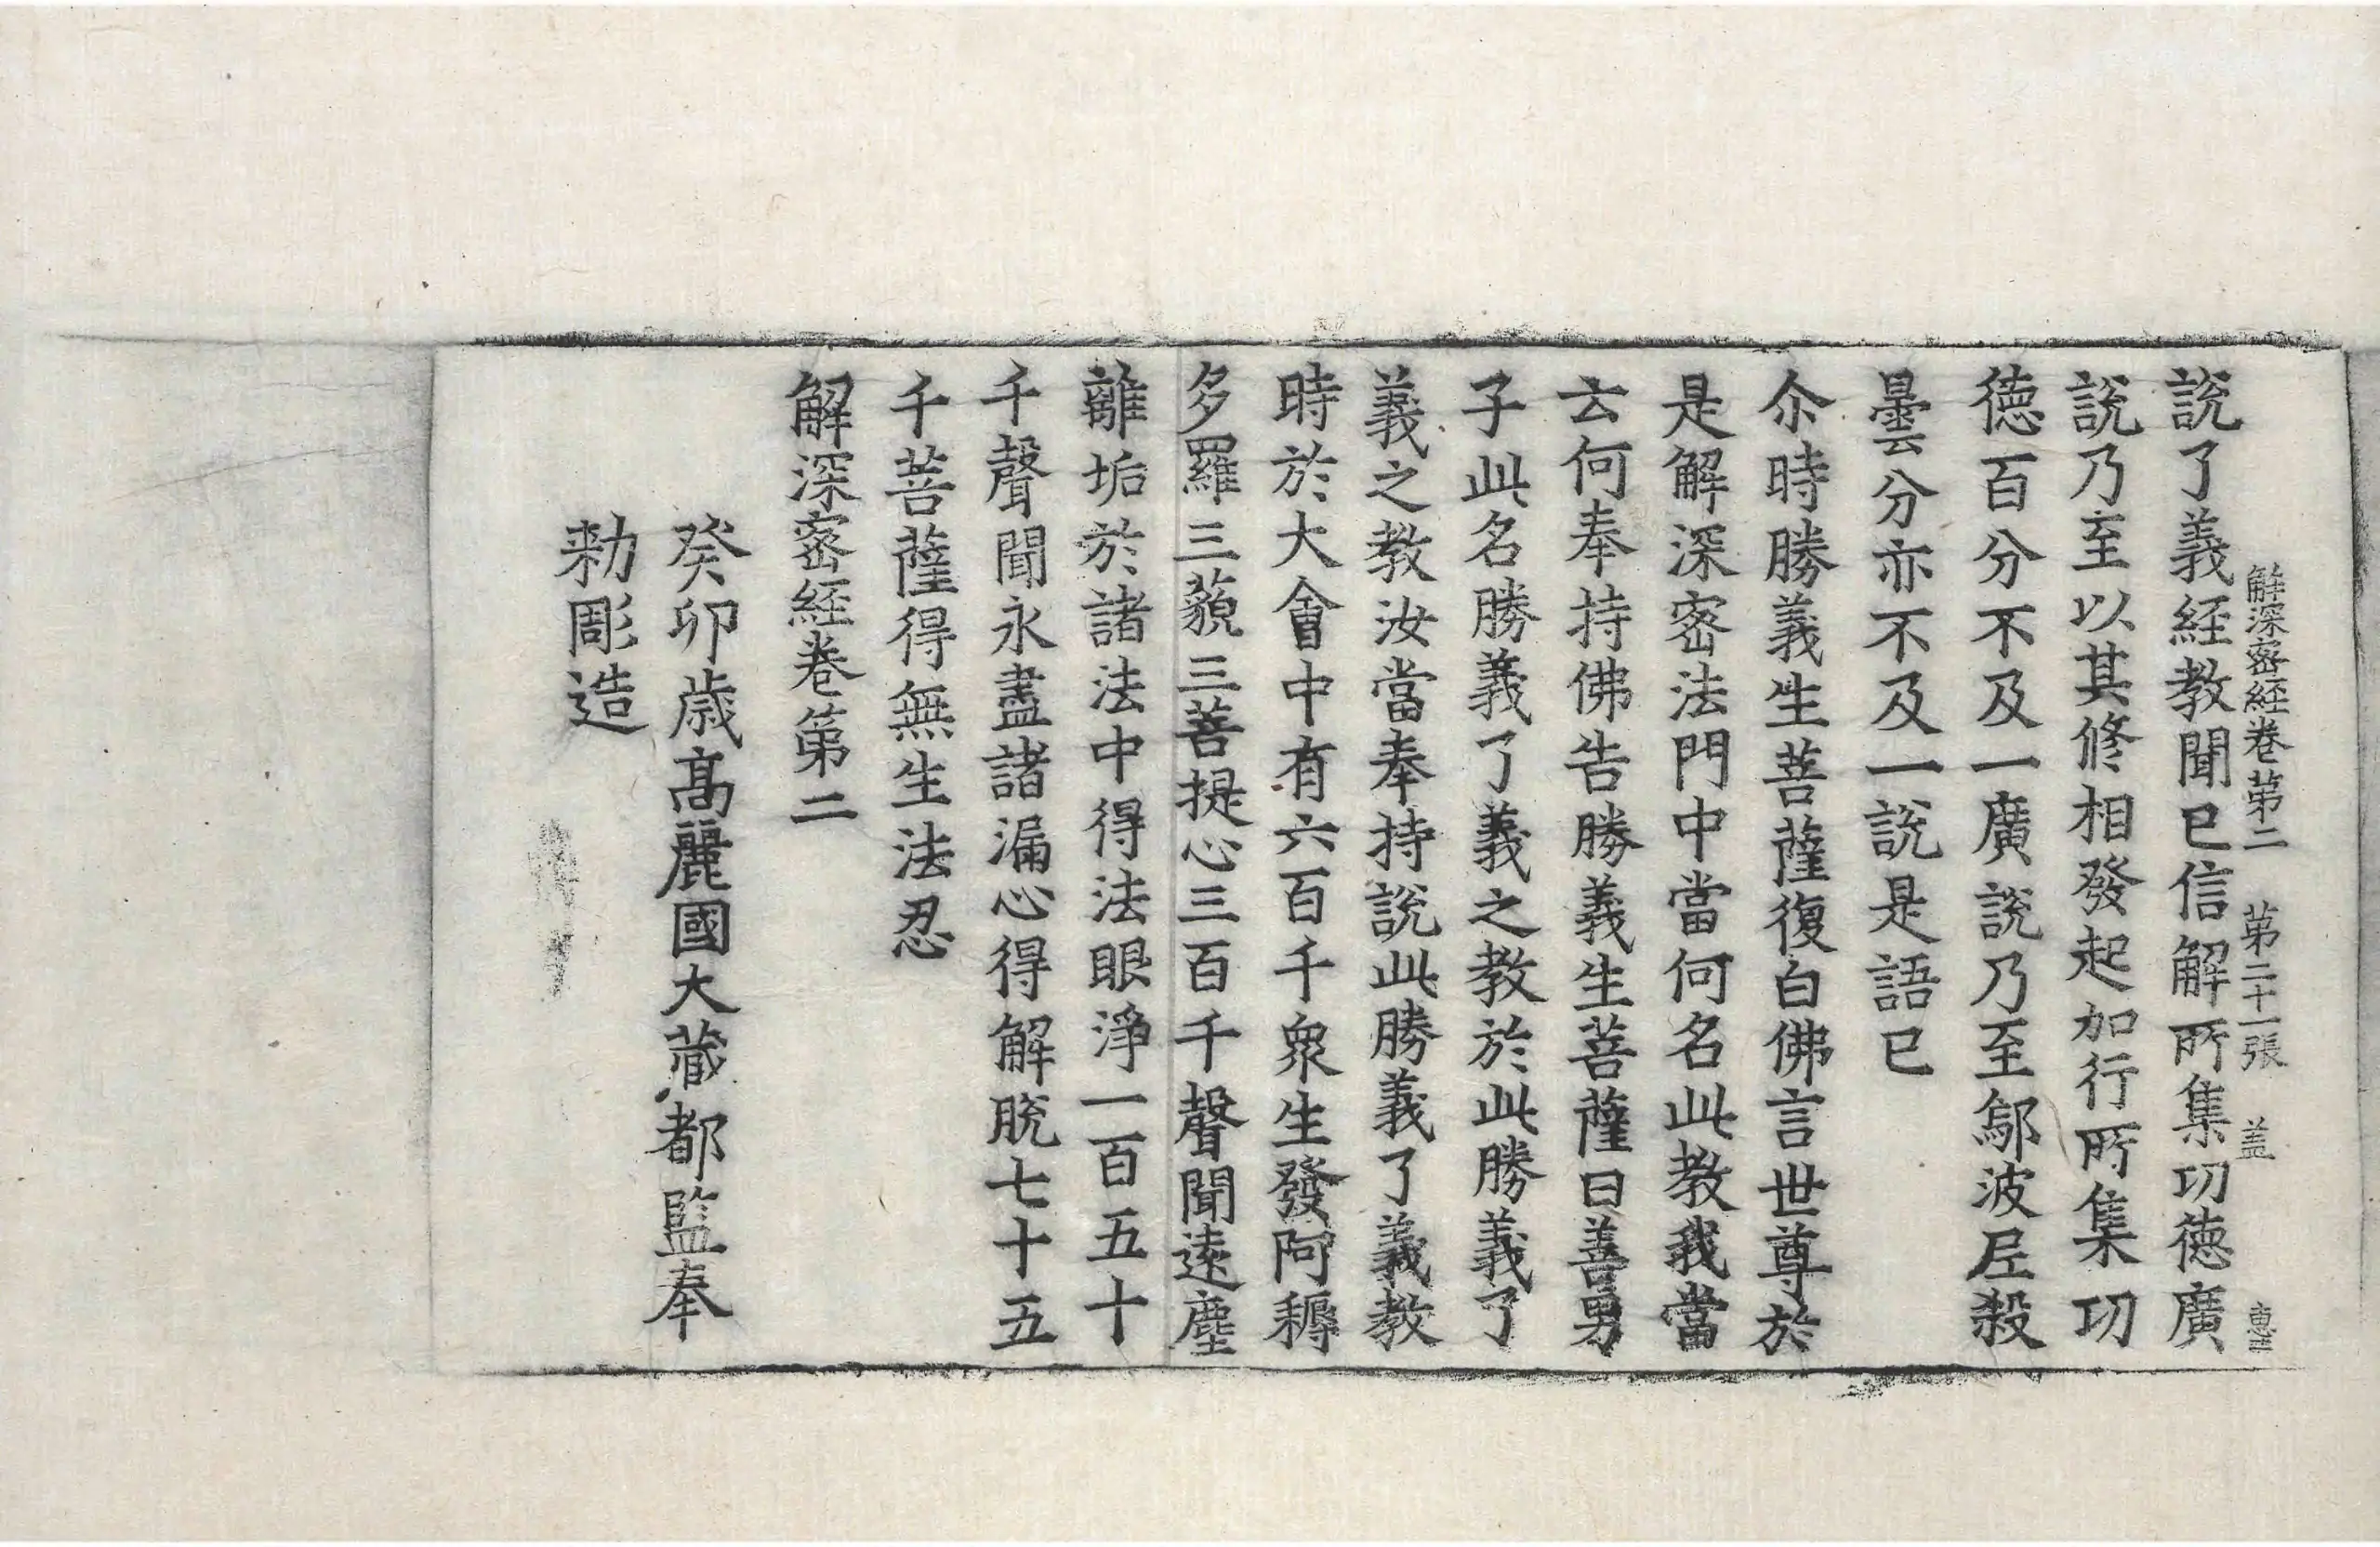 解深密経卷苐二 苐二十一張 盖
說了義経教聞已信解所集功德廣
說乃至以其修相發起加行所集功
德百分不及一廣說乃至鄔波尼殺
曇分亦不及一說是語已
尒時勝義生菩薩復白佛言世尊於
是解深密法門中當何名此教我當
云何奉持佛告勝義生菩薩曰善男
子此名勝義了義之教於此勝義了
義之教汝當奉持說此勝義了義教
時於大會中有六百千衆生發阿耨
多羅三藐三菩提心三百千聲聞遠塵
離垢於諸法中得法眼淨一百五十
千聲聞永盡諸漏心得解脫七十五
千菩薩得無生法忍
解深密経卷第二
癸卯歲高麗國大藏都監奉
勑彫造